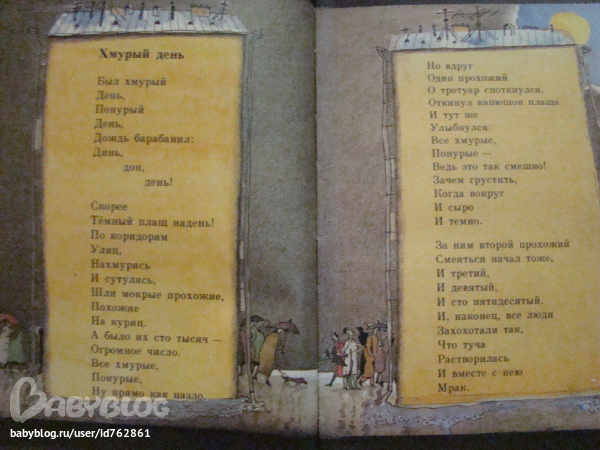 Хмурый день
Был хмурый
День,
Понурый
День,
Дождь барабанил:
Динь,
дон,
день!
Скорее
Тёмный плащ надень!
По коридорам
Улиц,
Нахмурясь
И сутулясь,
Шли мокрые прохожие,
Похожие
На куриц.
А было их сто тысяч —
Огромное число.
Все хмурые,
Понурые,
Ну прямо как назло.
Но вдруг
Один прохожий
О тротуар споткнулся,
Откинул капюшон плаща
И тут же
Улыбнулся:
Все хмурые,
Понурые —
Ведь это так смешно!
Зачем грустить,
Когда вокруг
И сыро
И темно.
За ним второй прохожий
Смеяться начал тоже,
И третий,
И девятый,
И сто пятидесятый.
И, наконец, все люди
Захохотали так,
Что туча
Растворилась
И вместе с нею
Мрак.
BABYBLOG
babyblog.ru/user/id762861